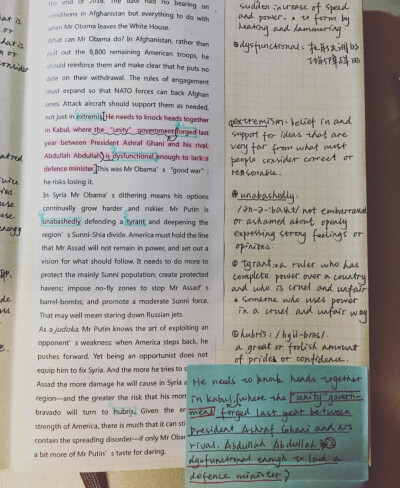 the end of 2016. The date had no bearing on
conditions in Afghanistan but everything to do with
when Mr Obama leaves the White House.
What can Mr Obama do? In Afghanistan, rather than
pull out the 9,800 remaining American troops, he
should reinforce them and make clear that he puts no
date on their withdrawal. The rules of engagement
must expand so that NATO forces can back Afghan
ones. Attack aircraft should support them as needed,
not just in extremis. He needs to knock heads together
in Kabul, where the "unity" government forged last
year between President Ashraf Ghani and his rival,
Abdullah Abdullah, is dysfunctional enough to lack a
defence minister. This was Mr Obama's "good war":
he risks losing it.
In Syria Mr Obama's dithering means his options
continually grow harder and riskier. Mr Putin is
unabashedly defending a tyrant and deepening the
region's Sunni-Shia divide. America must hold the line
that Mr Assad will not remain in power, and set out a
vision for what should follow. It needs to do more to
protect the mainly Sunni population: create protected
havens; impose no-fly zones to stop Mr Assad's
barrel-bombs; and promote a moderate Sunni force.
That may well mean staring down Russian jets.
As a judoka, Mr Putin knows the art of exploiting an
opponent's weakness: when America steps back, he
pushes forward. Yet being an opportunist does not
equip him to fix Syria. And the more he tries to s
Assad the more damage he will cause in Syria a
region—and the greater the risk that his mom
bravado will turn to hubris. Given the
strength of America, there is much that it can sti
contain the spreading disorder—if only Mr Obam
a bit more of Mr Putin's taste for daring.
sudden increase of speed
and power. to form by
heating and hammering.
dysfunctional:
extremism: belief in and
support for ideas that are
very far from what most
people consider correct or
reasonable.
unabashedly:
not embarrassed
or ashamed about openly
expressing strong feelings or
opinions.
Tyrant: a ruler who has
complete power over a country
and who is cruel and unfair
someone who uses power
in a cruel and unfair way
hubris:
a great or foolish amount
of prides or confidence.
He needs to knock heads together
in Kabul, (where the "unity" govern-
ment forged last year between
president Ashraf Ghani and his
rival. Abdullah Abdullah is
dysfunctional enough to lack a
defence minister.)